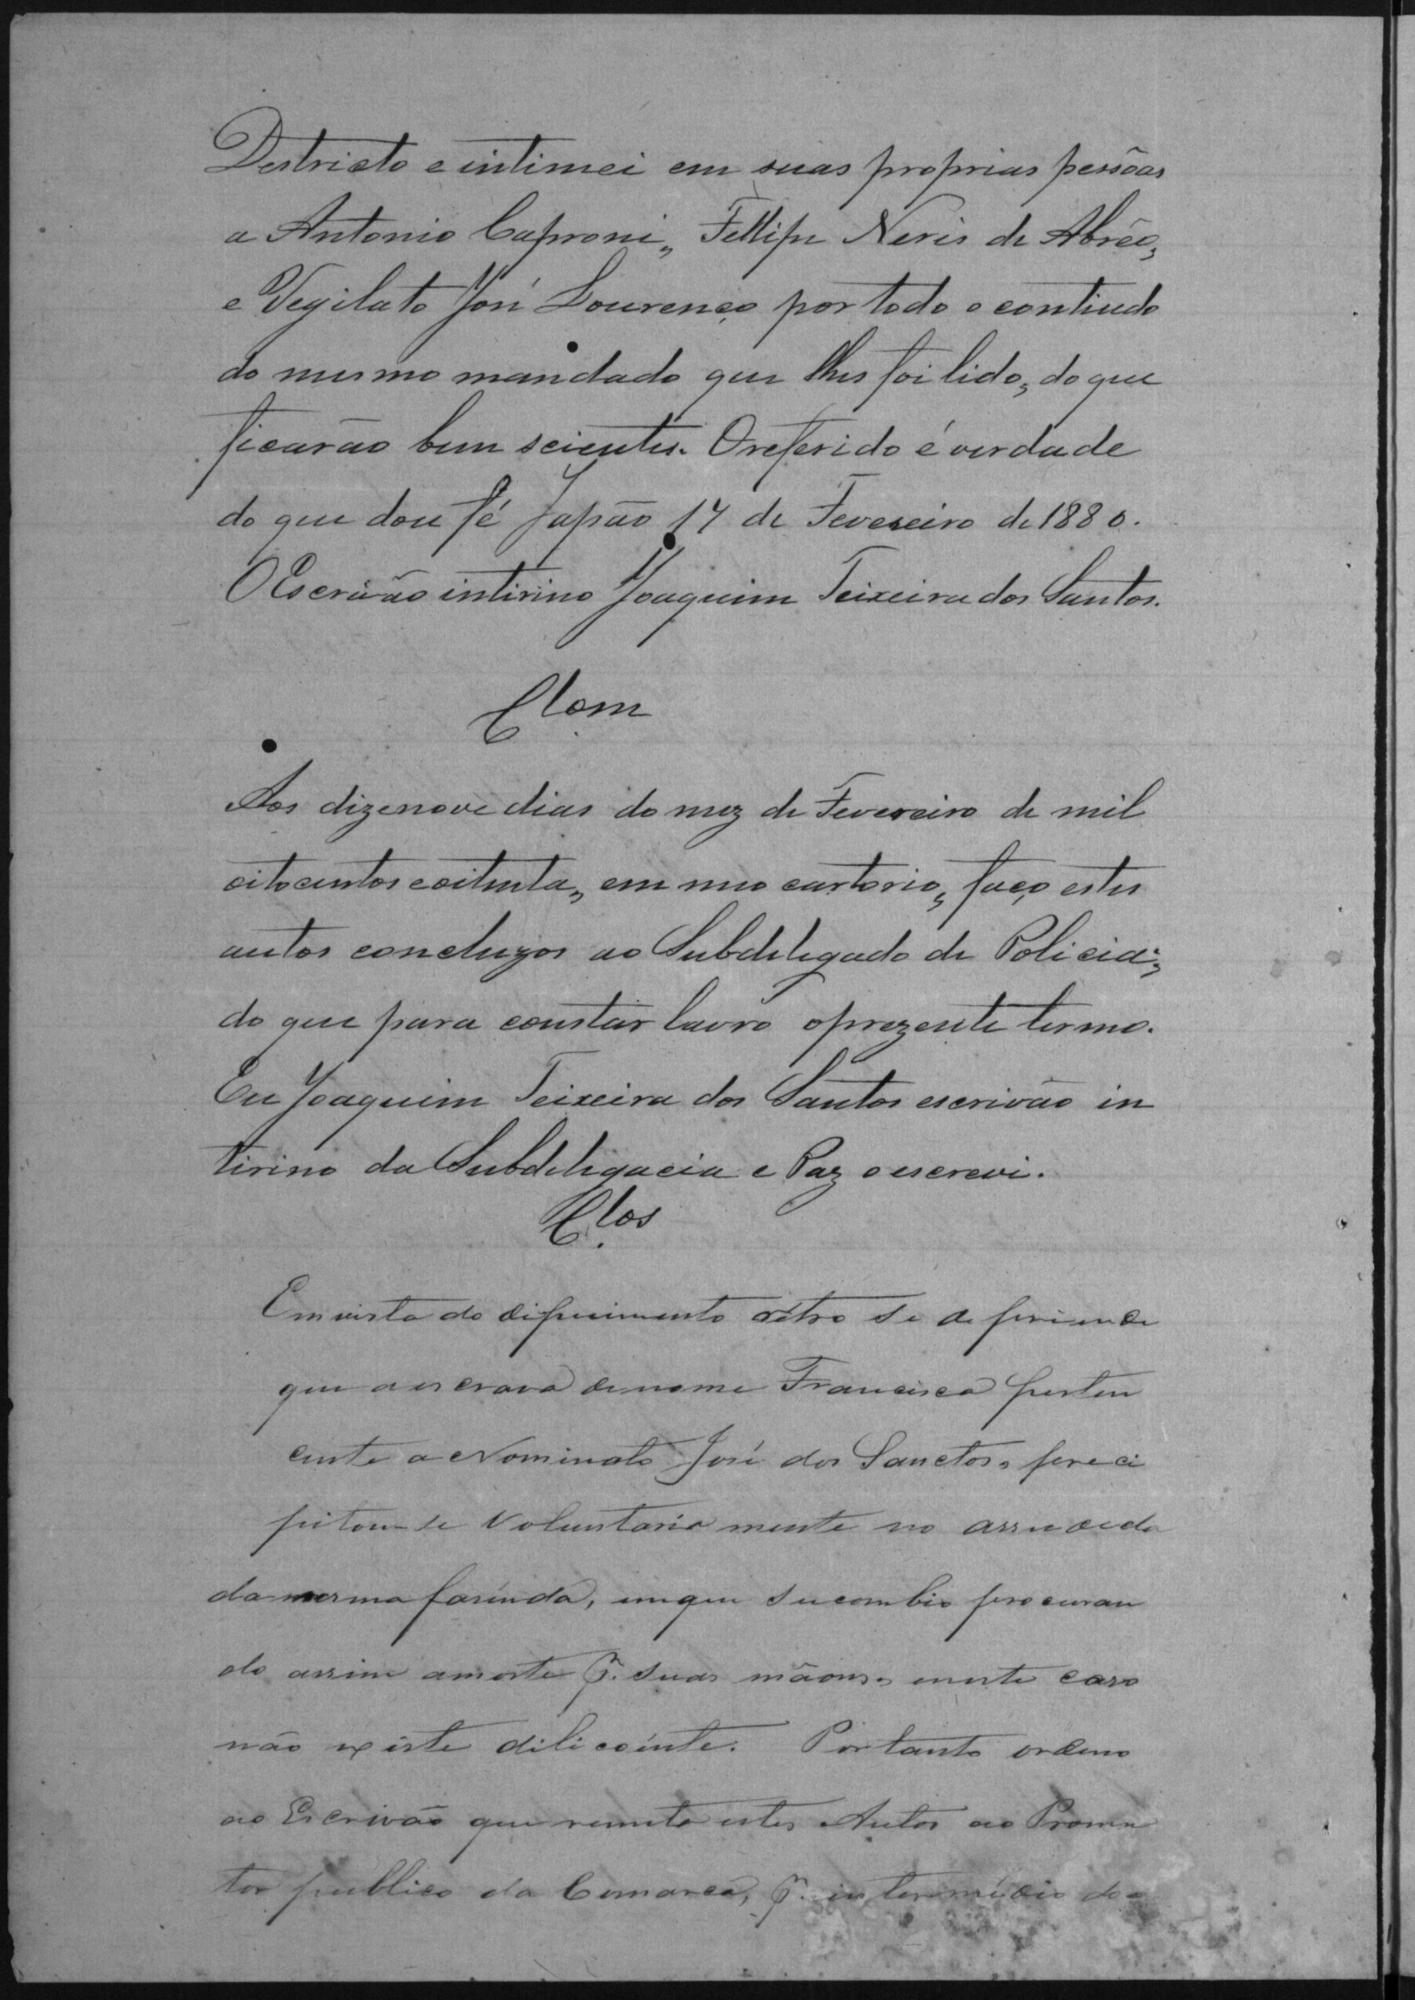 Destricto e intimei em suas proprias pessôas
a Antonio Caproni, Fellipe Neris de Abrêo,
e Vegilato José Lourenço por todo o contiudo
do mesmo mandado que lhes foi lido, do que
ficarão bem scientes. O referido é verdade
do que dou fé Japão 17 de Fevereiro de 1880.
O Escrivão intirino Joaquim Teixeira dos Santos.
Clom
Aos dizenove dias do mez de Fevereiro de mil
oitocentos e oitenta, em meo cartorio, faço estes
autos concluzos ao Subdelegado de Policia;
do que para constar lavro o prezente termo.
Eu Joaquim Teixeira dos Santos escrivão in
tirino da Subdeligacia e Paz o escrevi.
Clos
Em vista do difirimento retro se
que a escrava de nome Francisca perten
cente a Nominato José dos Sanctos, preci
pitou-se voluntaria mente no
da mesma fasenda, em que sucombio procuran
do assim a morte p. suas mãons, e neste caso
não existe Portanto ordeno
ao Escrivão que remeta estes Autos ao Promo
tor publico da Comarca, p. intermédio do